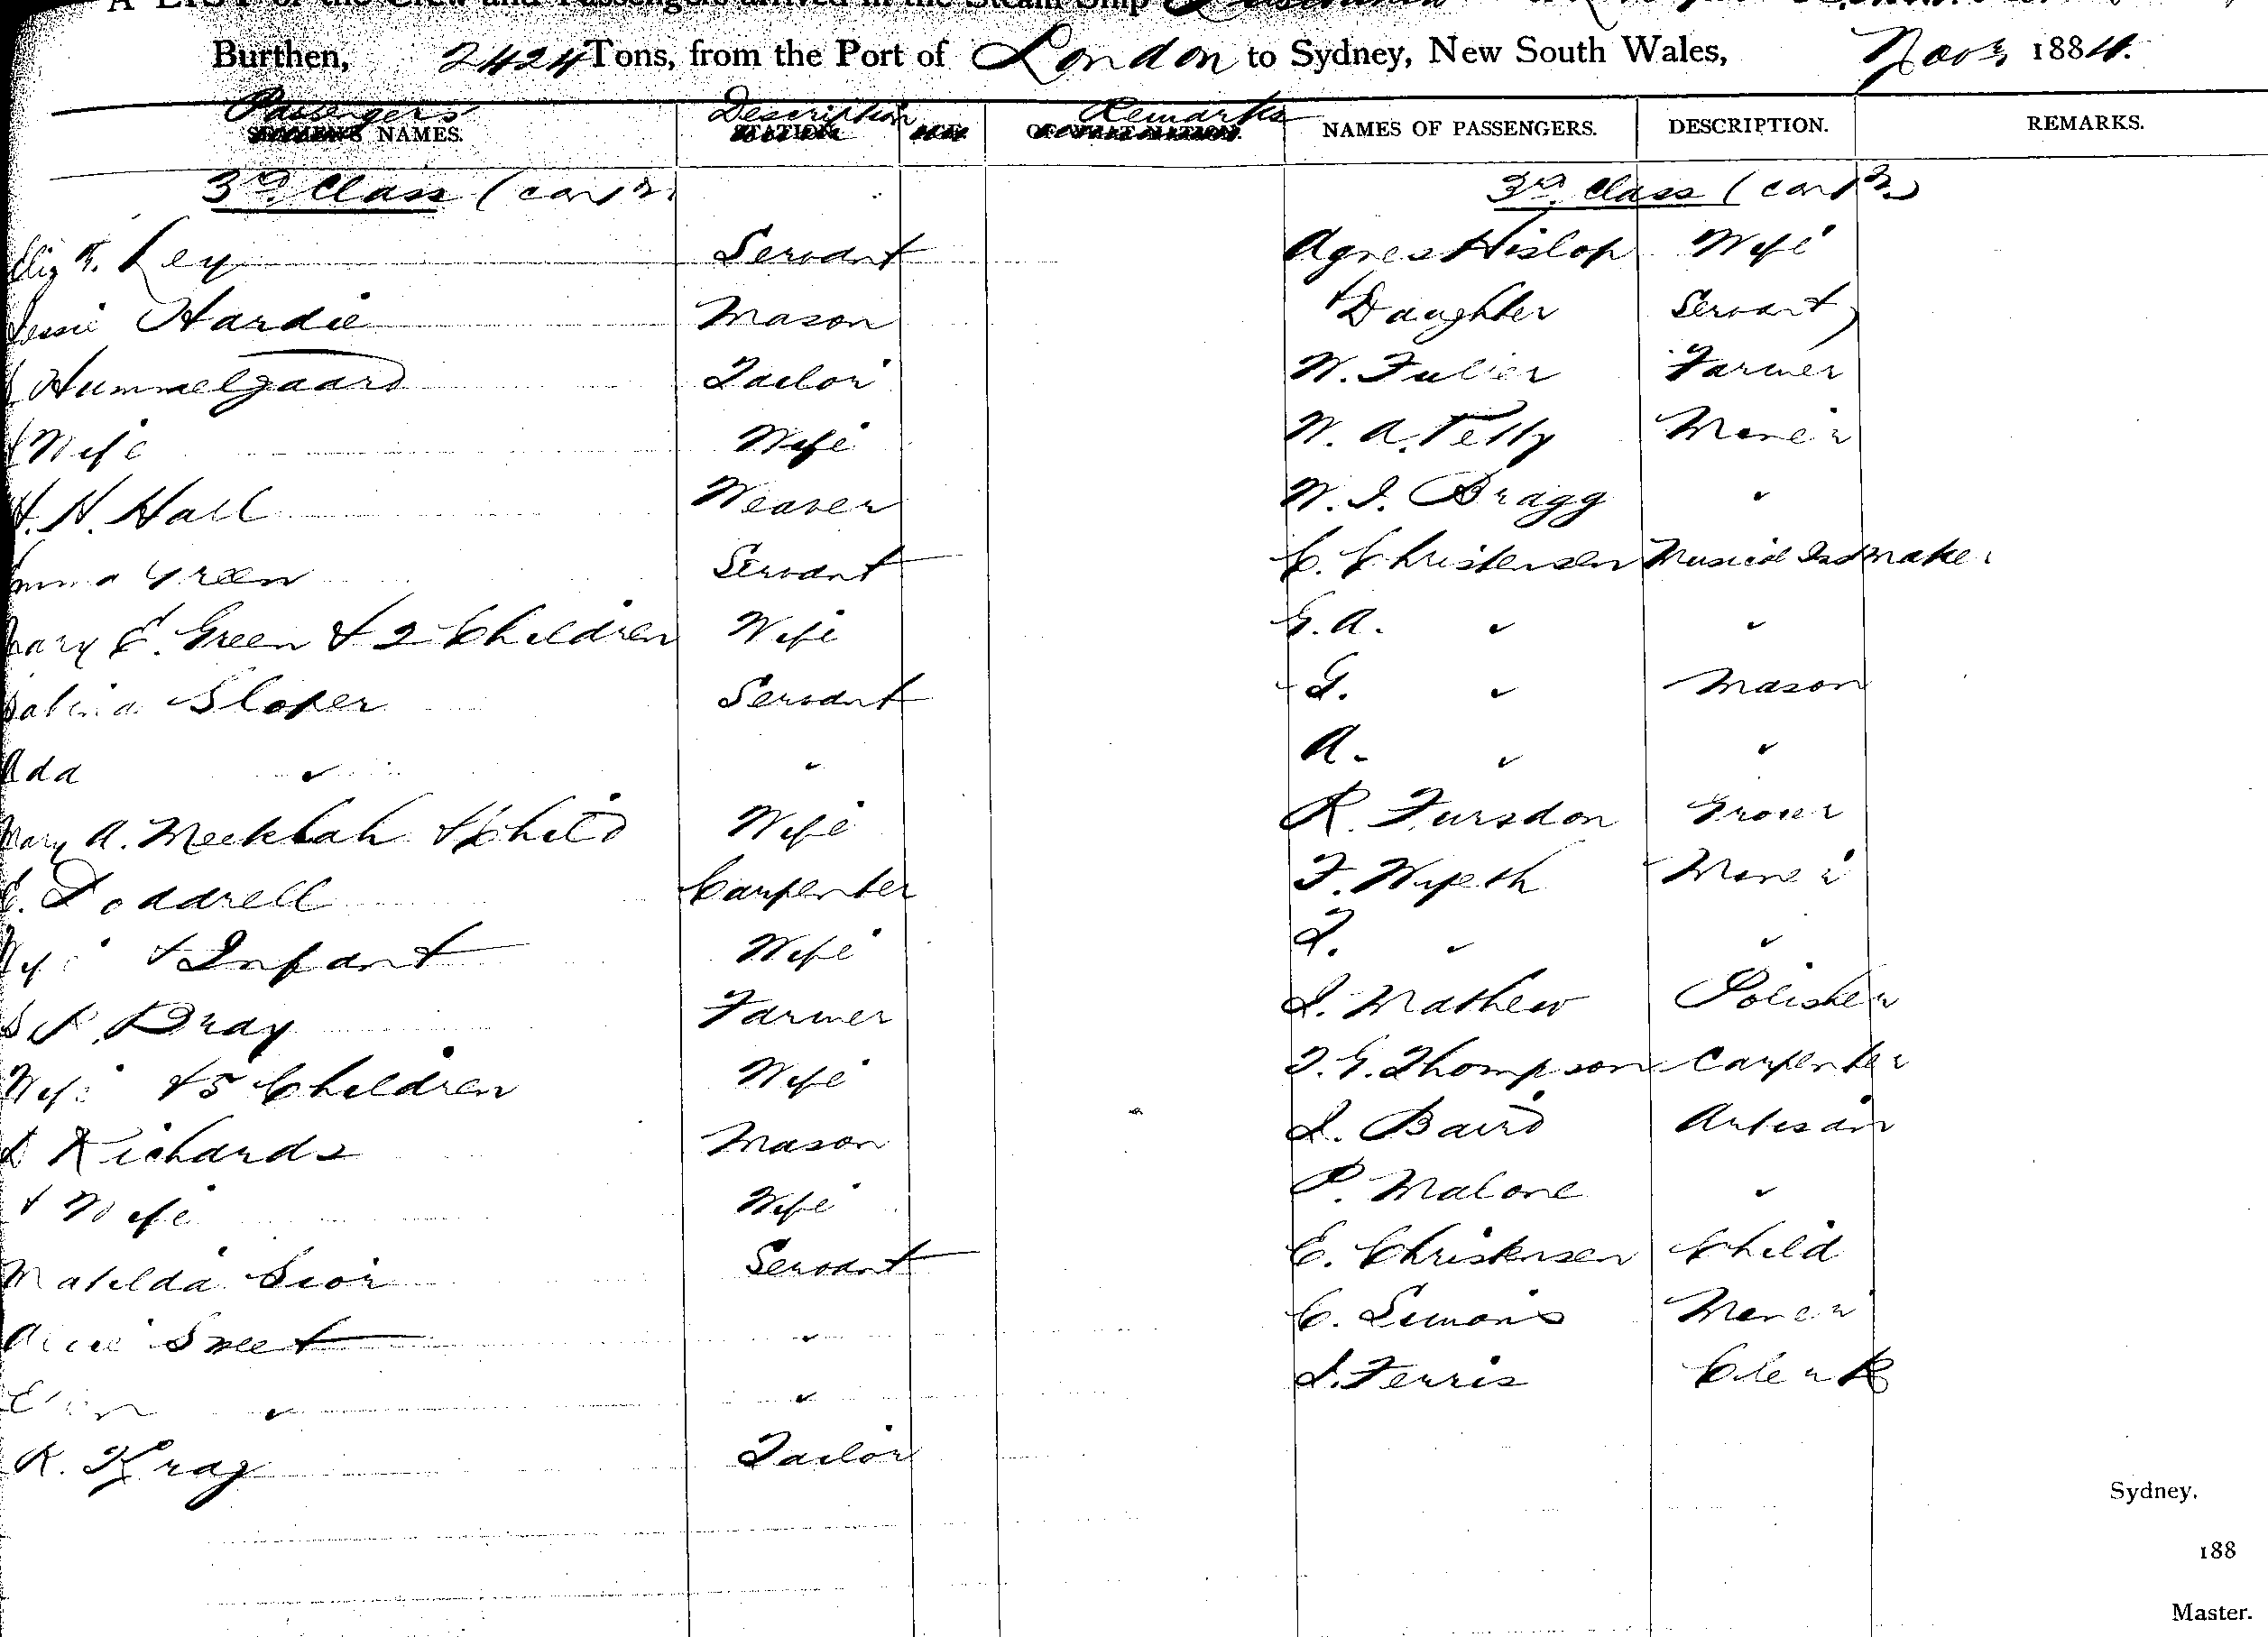 A LIST of the Crew and Passengers arrived in the Steam Ship
Burthen, 2424 Tons, from the Port of London to Sydney, New South Wales, Nov 1884.
Passengers Description Remarks
NAMES. NAMES OF PASSENGERS. DESCRIPTION. REMARKS.
3rd Class (contd.
Eliz th. Key Servant
Jessie Hardie Mason
Hummelgaard Tailor
& Wife Wife
H. H. Hall Weaver
Emma Green Servant
Mary E. Green & 2 Children Wife
Sabina Sloper Servant
Ada " "
Mary A. Meeklah & Child Wife
E. Doddrell Carpenter
Wife & Infant Wife
Bray Farmer
Wife & 5 Children Wife
Richards Mason
& Wife Wife
Matilda Servant
Alice Sweet "
" "
R. Krag Tailor
3rd Class (contd.)
Agnes Hislop Wife
& Daughter Servant
W. Fuller Farmer
W. A. Telly Miner
W. J. Bragg "
C. Christensen Musical Inst maker
G. A. " "
G. " Mason
A. " "
R. Fursdon Grocer
F. Wyeth Miner
T. " "
J. Mathew Polisher
T. G. Thompson Carpenter
J. Baird Artisan
P. Malone "
E. Christensen Child
C. Simons Miner
J. Ferris Clerk
Sydney.
188
Master.